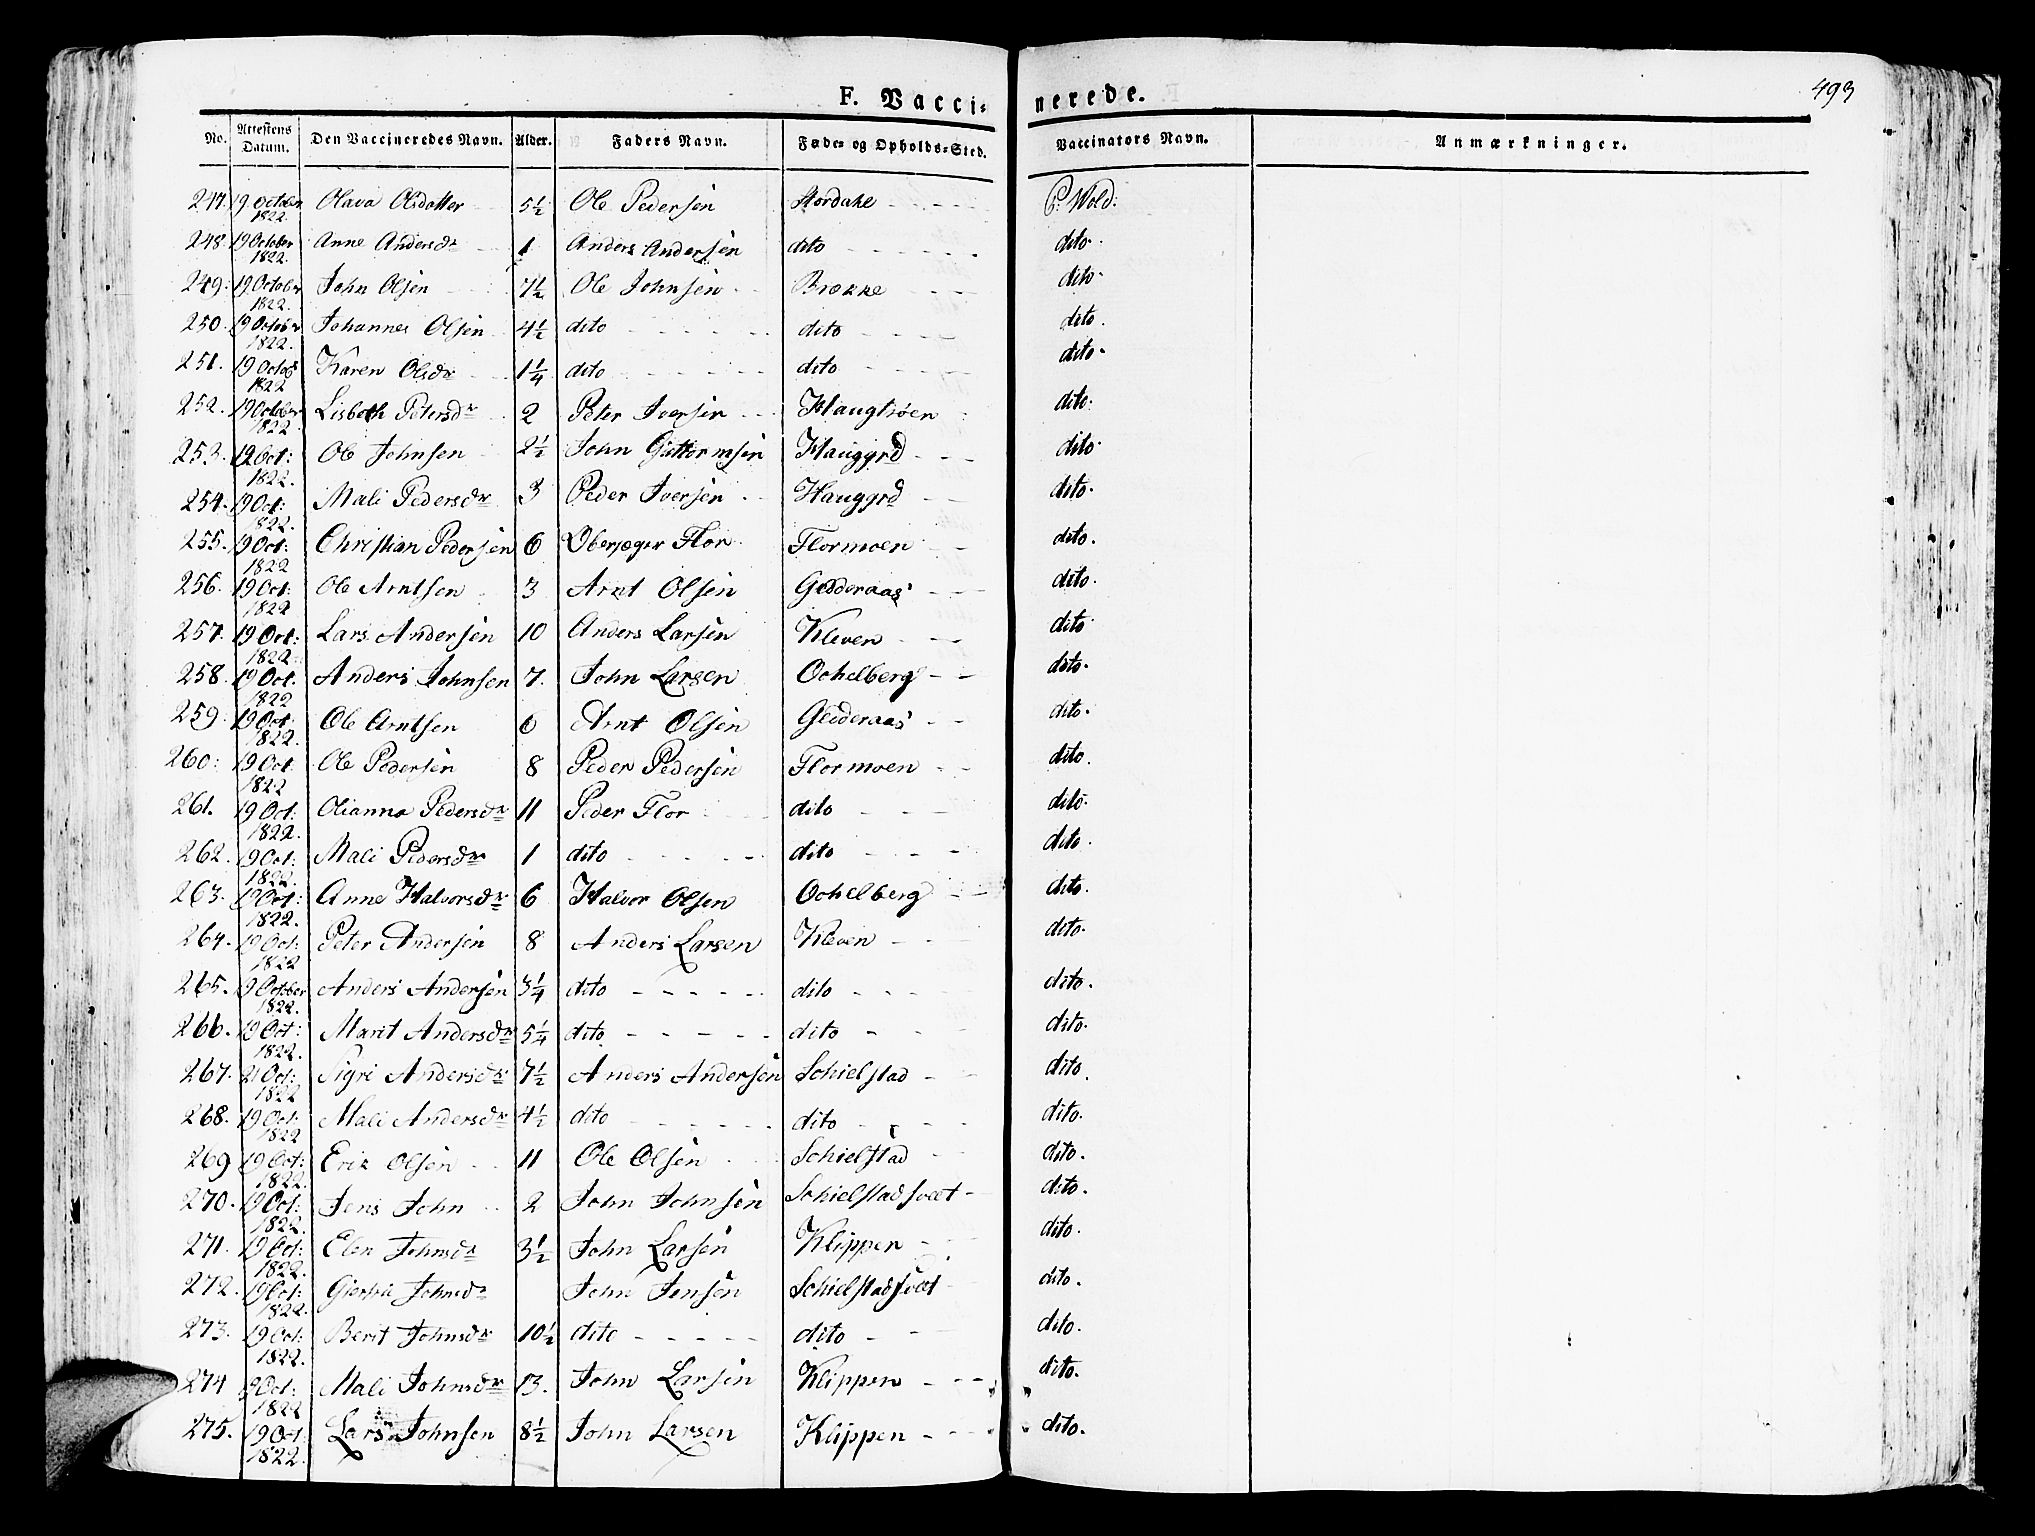 F. Vacci- nerede. 493
No. Attestens Datum. Den Vaccineredes Navn. Alder. Faders Navn. Føde- og Opholds-Sted. Vaccinators Navn. Anmærkninger.
247. 19 October 1822 Olava Olsdatter 5½ Ole Pedersen Stordahe P: Wold:
248. 19 October 1822. Anne Andersdr 1 Anders Andersen dito dito.
249. 19 October 1822. John Olsen 7½ Ole Johnsen Brække dito.
250. 19 October 1822. Johannes Olsen 4½ dito dito dito.
251. 19 Octob 1822 Karen Olsdr 1¼ dito dito dito.
252. 19 October 1822. Lisbeth Petersdr 2 Peter Iversen Haugtrøen dito.
253. 19 Oct: 1822. Ole Johnsen 2½ John Guttormsen Hauggrd dito.
254. 19 Oct: 1822. Mali Pedersdr 3 Peder Iversen Hauggrd dito.
255. 19 Oct: 1822 Christian Pedersen 6 Oberjæger Flor Flormoen dito.
256. 19 Oct: 1822 Ole Arntsen 3 Arnt Olsen Gedderaas dito.
257. 19 Oct: 1822. Lars Andersen 10 Anders Larsen Kleven dito.
258. 19 Oct. 1822 Anders Johnsen 7. John Larsen Ochelberg dito.
259. 19 Oct: 1822. Ole Arntsen 6 Arnt Olsen Gedderaas dito.
260: 19 Oct. 1822 Ole Pedersen 8 Peder Pedersen Flormoen dito.
261. 19 Oct: 1822. Olianna Pedersdr 11 Peder Flor dito dito.
262. 19 Oct: 1822. Mali Pedersdr 1 dito dito dito.
263. 19 Oct: 1822. Anne Halvorsdr 6 Halvor Olsen Ochelberg dito.
264. 19 Oct: 1822 Peter Andersen 8 Anders Larsen Kleven dito.
265. 19 October 1822. Anders Andersen 3¼ dito dito dito.
266. 19 Oct: 1822. Marit Andersdr 5¼ dito dito dito.
267. 21 Oct: 1822 Sigri Andersdr 7½ Anders Andersen Schielstad dito.
268. 19 Oct: 1822 Mali Andersdr 4½ dito dito dito.
269 19 Oct: 1822. Erik Olsen 11 Ole Olsen Schielstad dito.
270. 19 Oct: 1822. Jens John 2 John Johnsen Schielstadsvet dito.
271. 19 Oct: 1822. Elen Johnsdr 3½ John Larsen Klippen dito.
272. 19 Oct: 1822. Johnsdr John Jensen Schielstadsvet dito.
273. 19 Oct: 1822. Berit Johnsdr 10½ dito dito dito.
274 19 Oct: 1822 Mali Johnsdr 13. John Larsen Klippen dito.
275. 19 Oct. 1822. Lars Johnsen 8½ John Larsen Klippen dito.